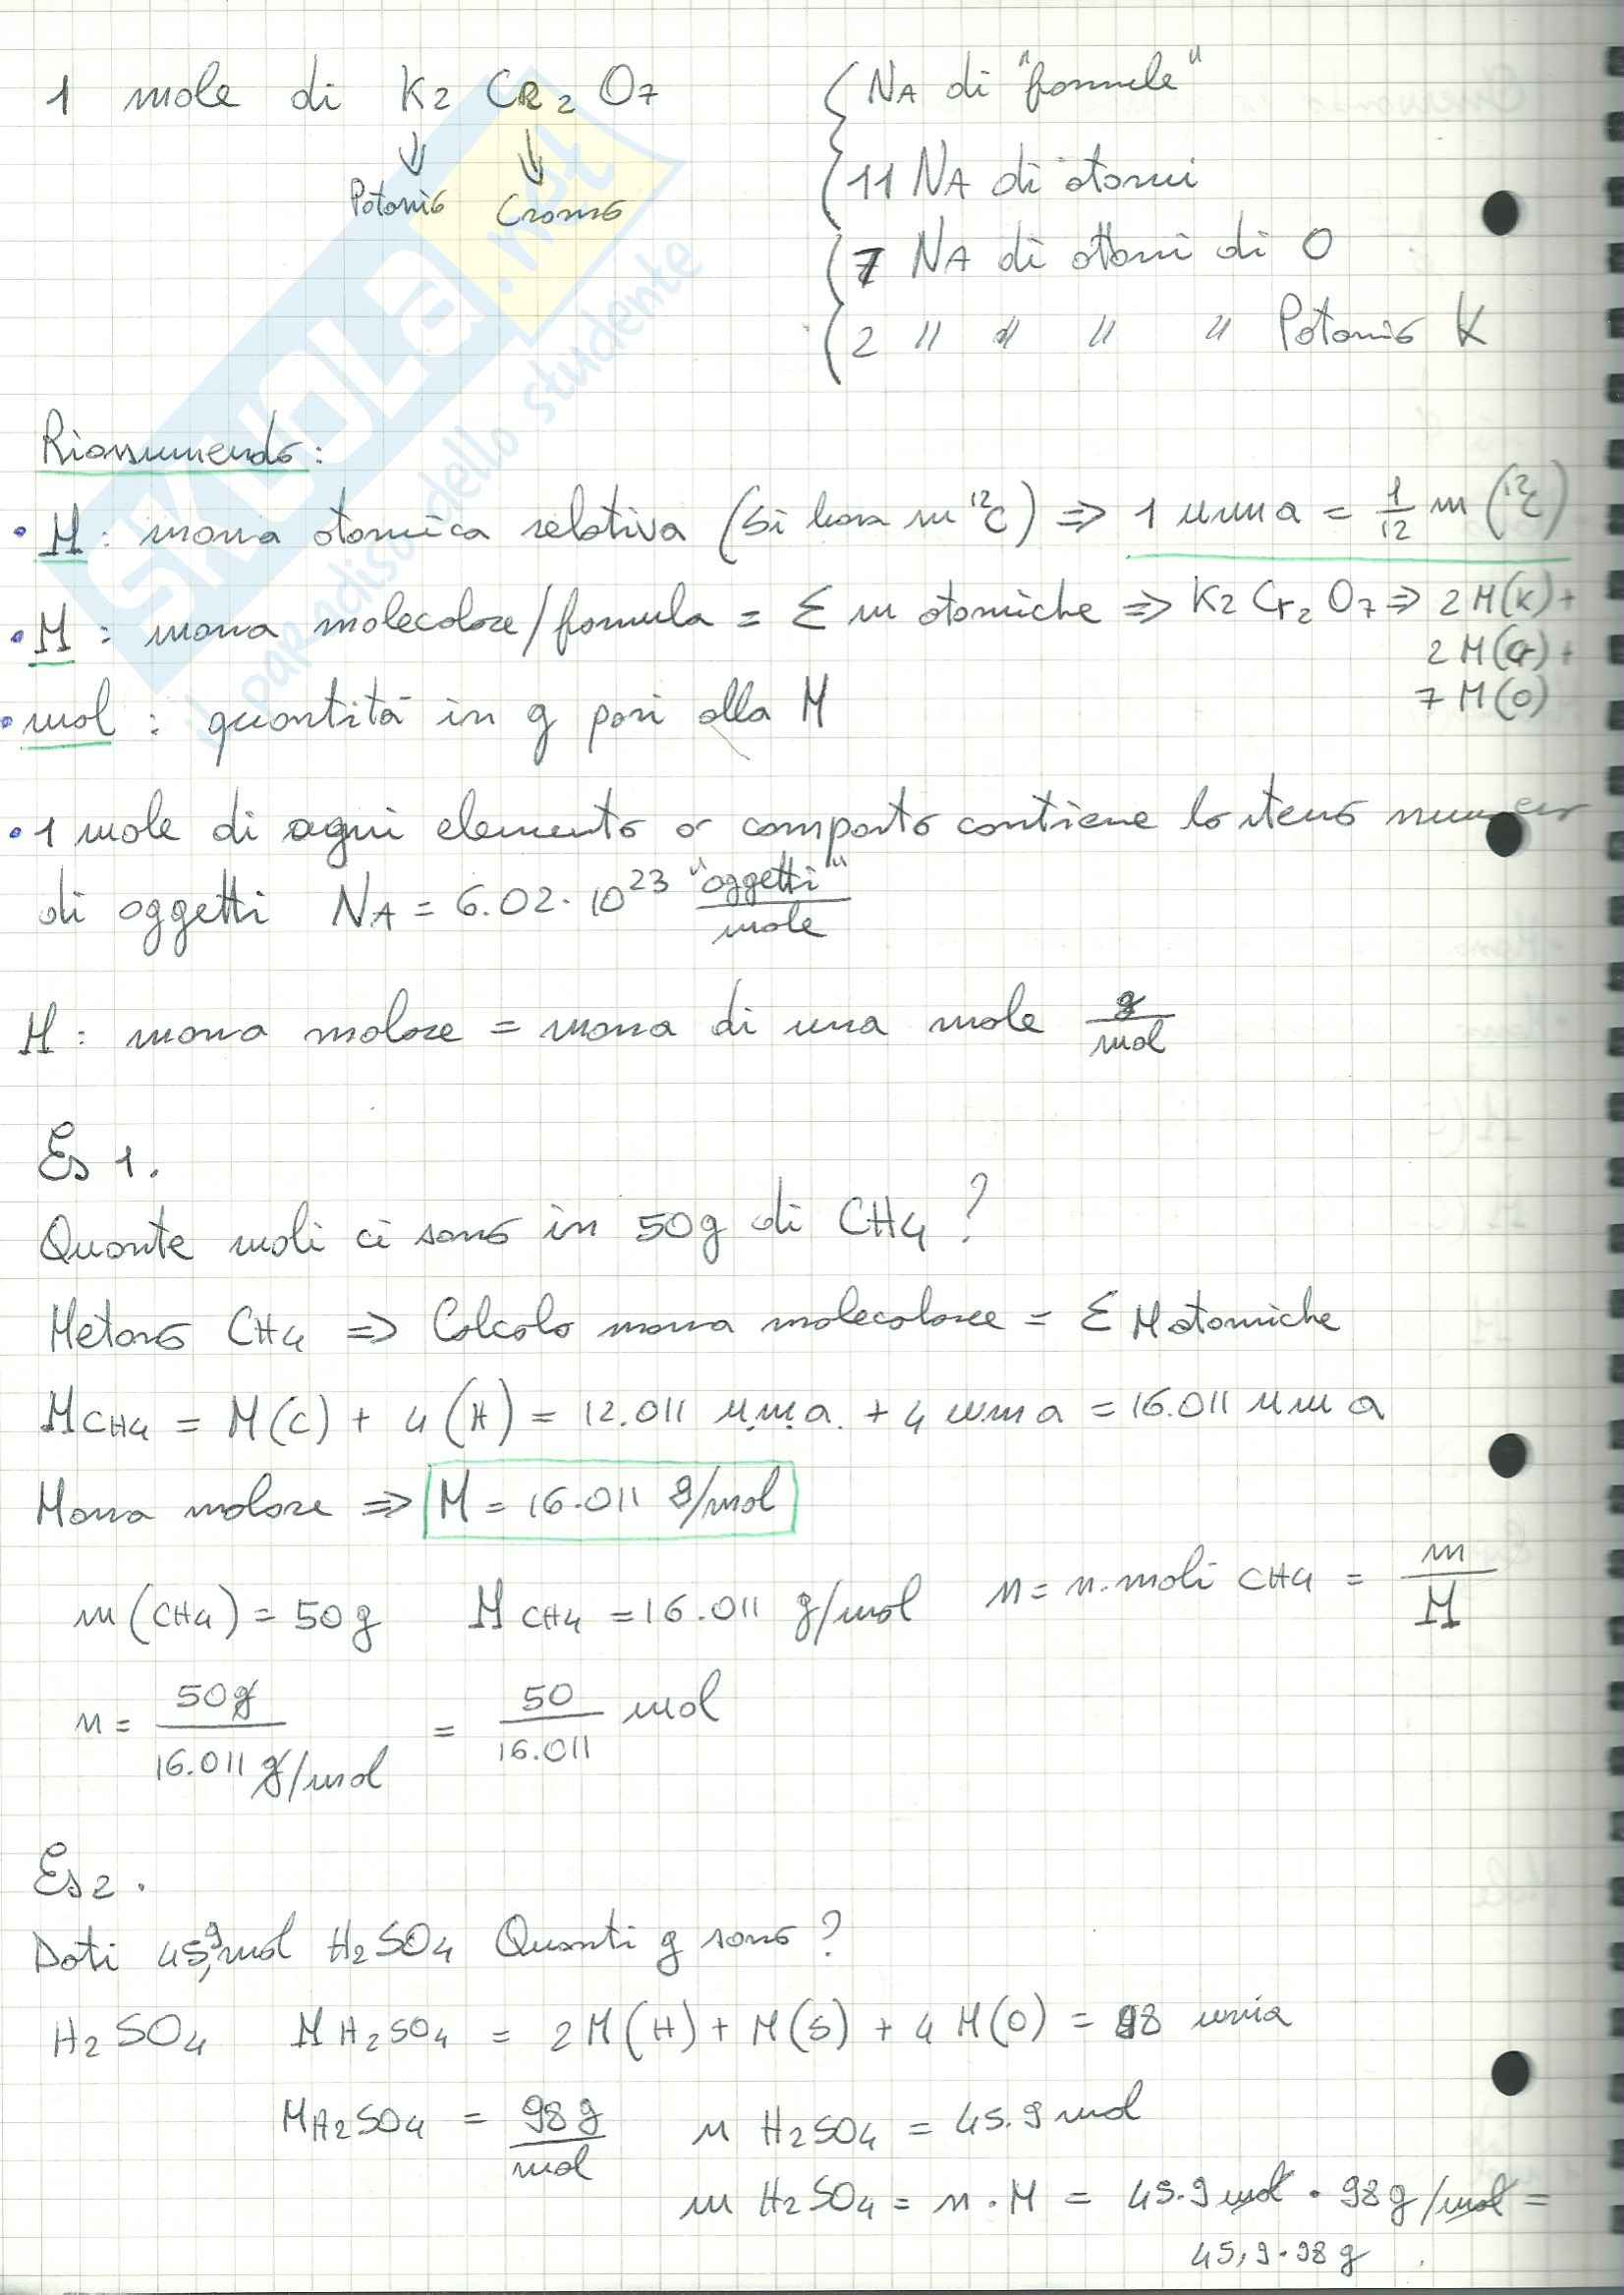 1 mole di K2 Cr2 O7 { NA di "formule"
Potassio Cromo { 11 NA di atomi
{ 7 NA di atomi di O
{ 2 " " " " Potassio K
SKUOLA.net
il paradiso dello studente
Riassumendo:
• M: massa atomica relativa (si basa su ¹²C) ⇒ 1 uma = 1/12 m (¹²C)
• M: massa molecolare/formula = Σ m atomiche ⇒ K2 Cr2 O7 ⇒ 2 M(K) +
2 M(Cr) +
7 M(O)
• mol : quantità in g pari alla M
• 1 mole di ogni elemento o composto contiene lo stesso numero
di oggetti NA = 6.02 · 10²³ "oggetti"/mole
M: massa molare = massa di una mole g/mol
Es 1.
Quante moli ci sono in 50g di CH4 ?
Metano CH4 ⇒ Calcolo massa molecolare = Σ M atomiche
MCH4 = M(C) + 4(H) = 12.011 u.m.a. + 4 uma = 16.011 uma
Massa molare ⇒ M = 16.011 g/mol
m (CH4) = 50g M CH4 = 16.011 g/mol n = n. moli CH4 = m/M
n = 50g / 16.011 g/mol = 50/16.011 mol
Es 2.
Dati 45,9 mol H2SO4 Quanti g sono ?
H2SO4 M H2SO4 = 2 M(H) + M(S) + 4 M(O) = 98 uma
MH2SO4 = 98 g/mol n H2SO4 = 45.9 mol
m H2SO4 = n · M = 45.9 mol · 98 g/mol =
45,9 · 98 g